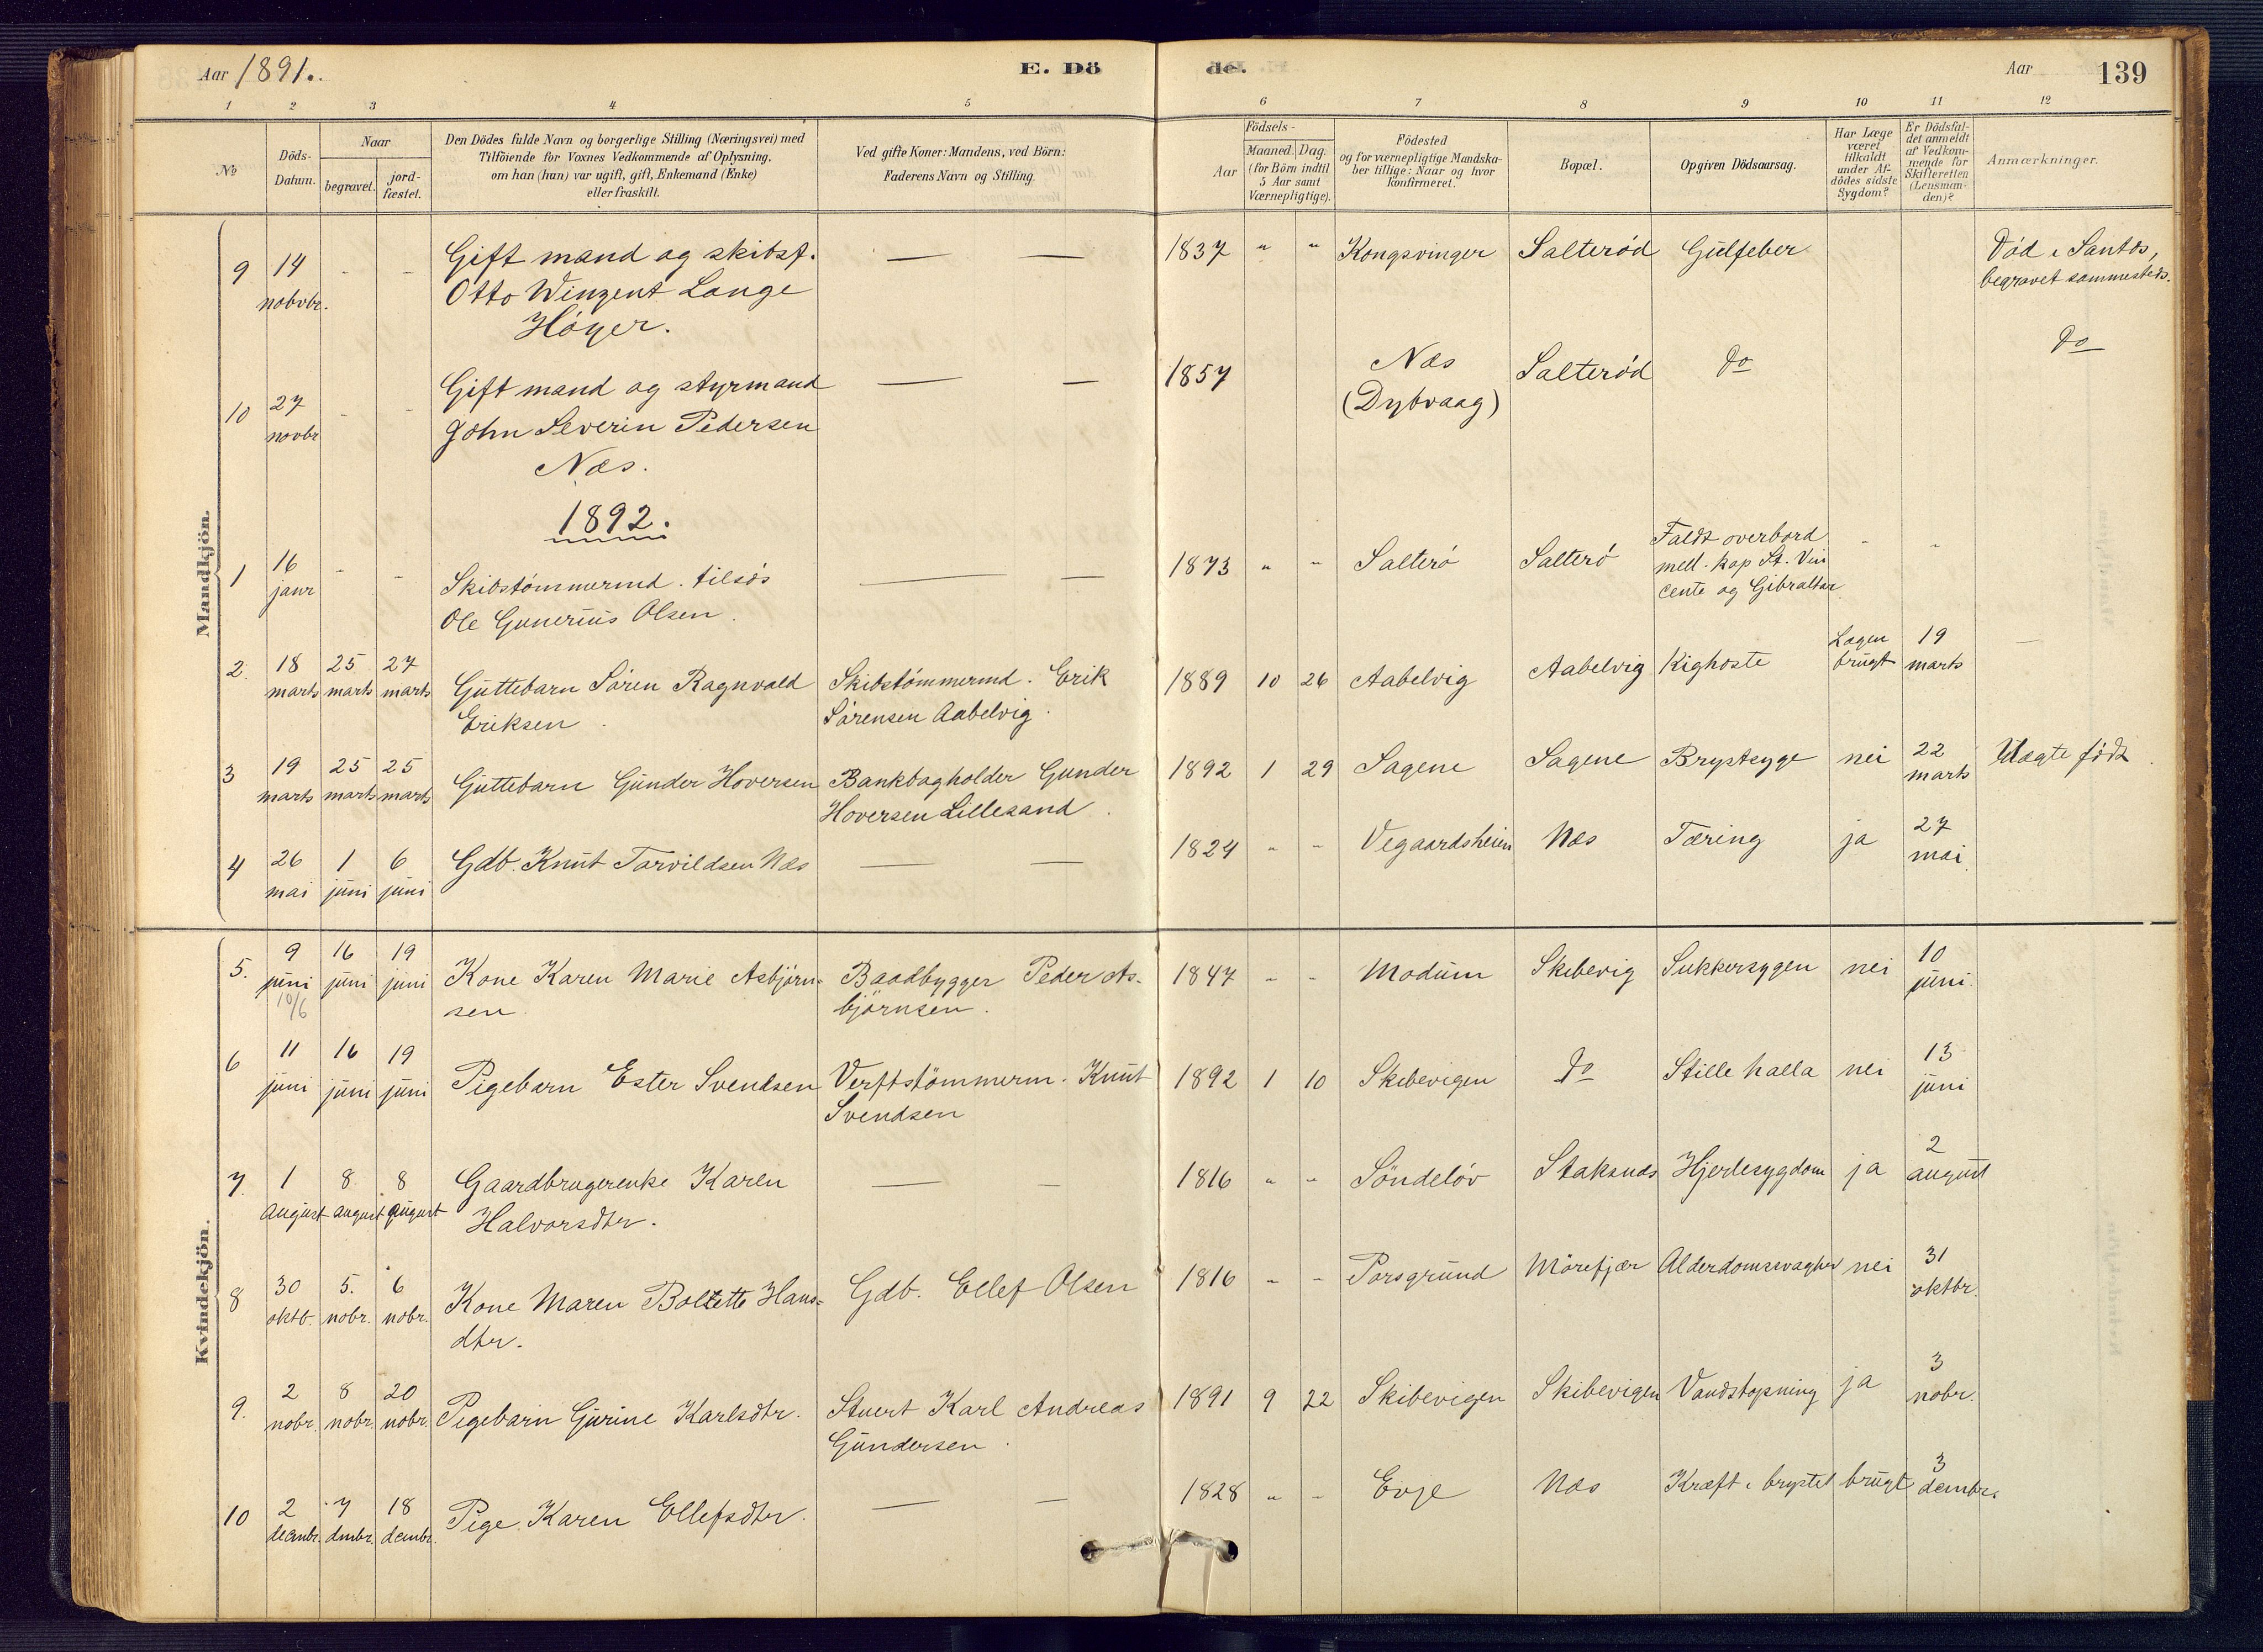 Aar 1891.
E. Dö
de.
Aar
139
1 2 3 4 5 6 7 8 9 10 11 12
No
Döds-Datum.
Naar
begravet.
jord-fæstet.
Den Dödes fulde Navn og borgerlige Stilling (Næringsvei) med
Tilföiende for Voxnes Vedkommende af Oplysning,
om han (hun) var ugift, gift, Enkemand (Enke)
eller fraskilt.
Ved gifte Koner: Mandens, ved Börn:
Faderens Navn og Stilling.
Födsels-
Aar
Maaned. Dag.
(for Börn indtil
5 Aar samt
Værnepligtige).
Födested
og for værnepligtige Mandska-
ber tillige: Naar og hvor
konfirmeret.
Bopæl.
Opgiven Dödsaarsag.
Har Læge
været
tilkaldt
under Af-
dödes sidste
Sygdom?
Er Dödsfal-
det anmeldt
af Vedkom-
mende for
Skifteretten
(Lensman-
den)?
Anmærkninger.
Mandkjön.
9 14 nobvbr. - - Gift mand og skibsf.
Otto Winzent Lange
Höyer.
— — 1837 " " Kongsvinger Salteröd Gulfeber
Död i Santos,
begravet sammesteds.
10 27 novbr - - Gift mand og styrmand
John Severin Pedersen
Næs.
— — 1857 Næs
(Dybvaag)
Salteröd do do
1892.
1 16 janr - - Skibstömmermd. tilsös
Ole Gunerius Olsen.
— — 1873 " " Salterö Salterö Faldt overbord
mell. kap St. Vin
cente og Gibraltar
- -
2. 18 marts 25 marts 27 marts Guttebarn Sören Ragnvald
Eriksen.
Skibstömmermd. Erik
Sörensen Aabelvig.
1889 10 26 Aabelvig Aabelvig Kighoste Lægen
brugt
19 marts —
3 19 marts 25 marts 25 marts Guttebarn Gunder Hoversen Bankbogholder Gunder
Hoversen Lillesand.
1892 1 29 Sagene Sagene Brystsyge nei 22 marts Uægte födt.
4 26 mai 1 juni 6 juni Gdb. Knut Tarvildsen Næs — — 1824 " - Vegaardsheien Næs Tæring ja 27 mai.
Kvindekjön.
5. 9 juni 10/6 16 juni 19 juni Kone Karen Marie Asbjörn-
sen.
Baadbygger Peder As-
björnsen.
1847 - - Modum Skibevig Sukkersygen nei 10 juni.
6 11 juni 16 juni 19 juni Pigebarn Ester Svendsen Verftstömmerm. Knut
Svendsen
1892 1 10 Skibevigen do Stille halla nei 13 juni
7. 1 August 8 august 8 august Gaardbrugerenke Karen
Halvorsdtr.
— — 1816 " - Söndelöv Staksnæs Hjertesygdom ja 2 august
8 30 oktb. 5. nobr. 6 nobr. Kone Maren Boltette Hans-
dtr.
Gdb. Ellef Olsen 1816 - - Porsgrund Mörefjær Alderdomssvaghed nei 31 oktbr.
9. 2 nobr. 8 nobr. 20 nobr. Pigebarn Gurine Karlsdtr. Stuert Karl Andreas
Gundersen.
1891 9 22 Skibevigen Skibevigen Vandstopning ja 3 nobr.
10 2 decmbr. 7 dmbr. 18 dcmbr. Pige Karen Ellefsdtr. — — 1828 " - Evje Næs Kræft i brystet brugt 3 dcmbr.